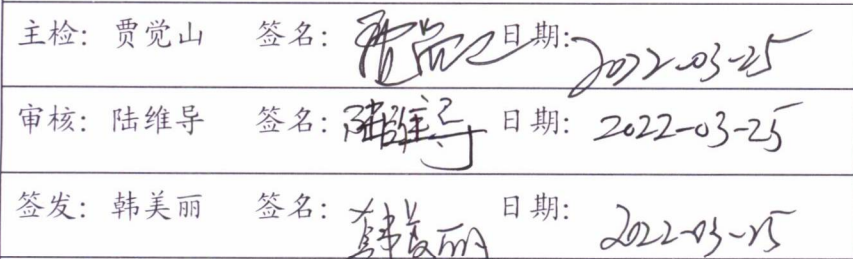 主检: 贾觉山 签名: 贾觉山 日期: 2022-03-25
审核: 陆维导 签名: 陆维导 日期: 2022-03-25
签发: 韩美丽 签名: 韩美丽 日期: 2022-03-25